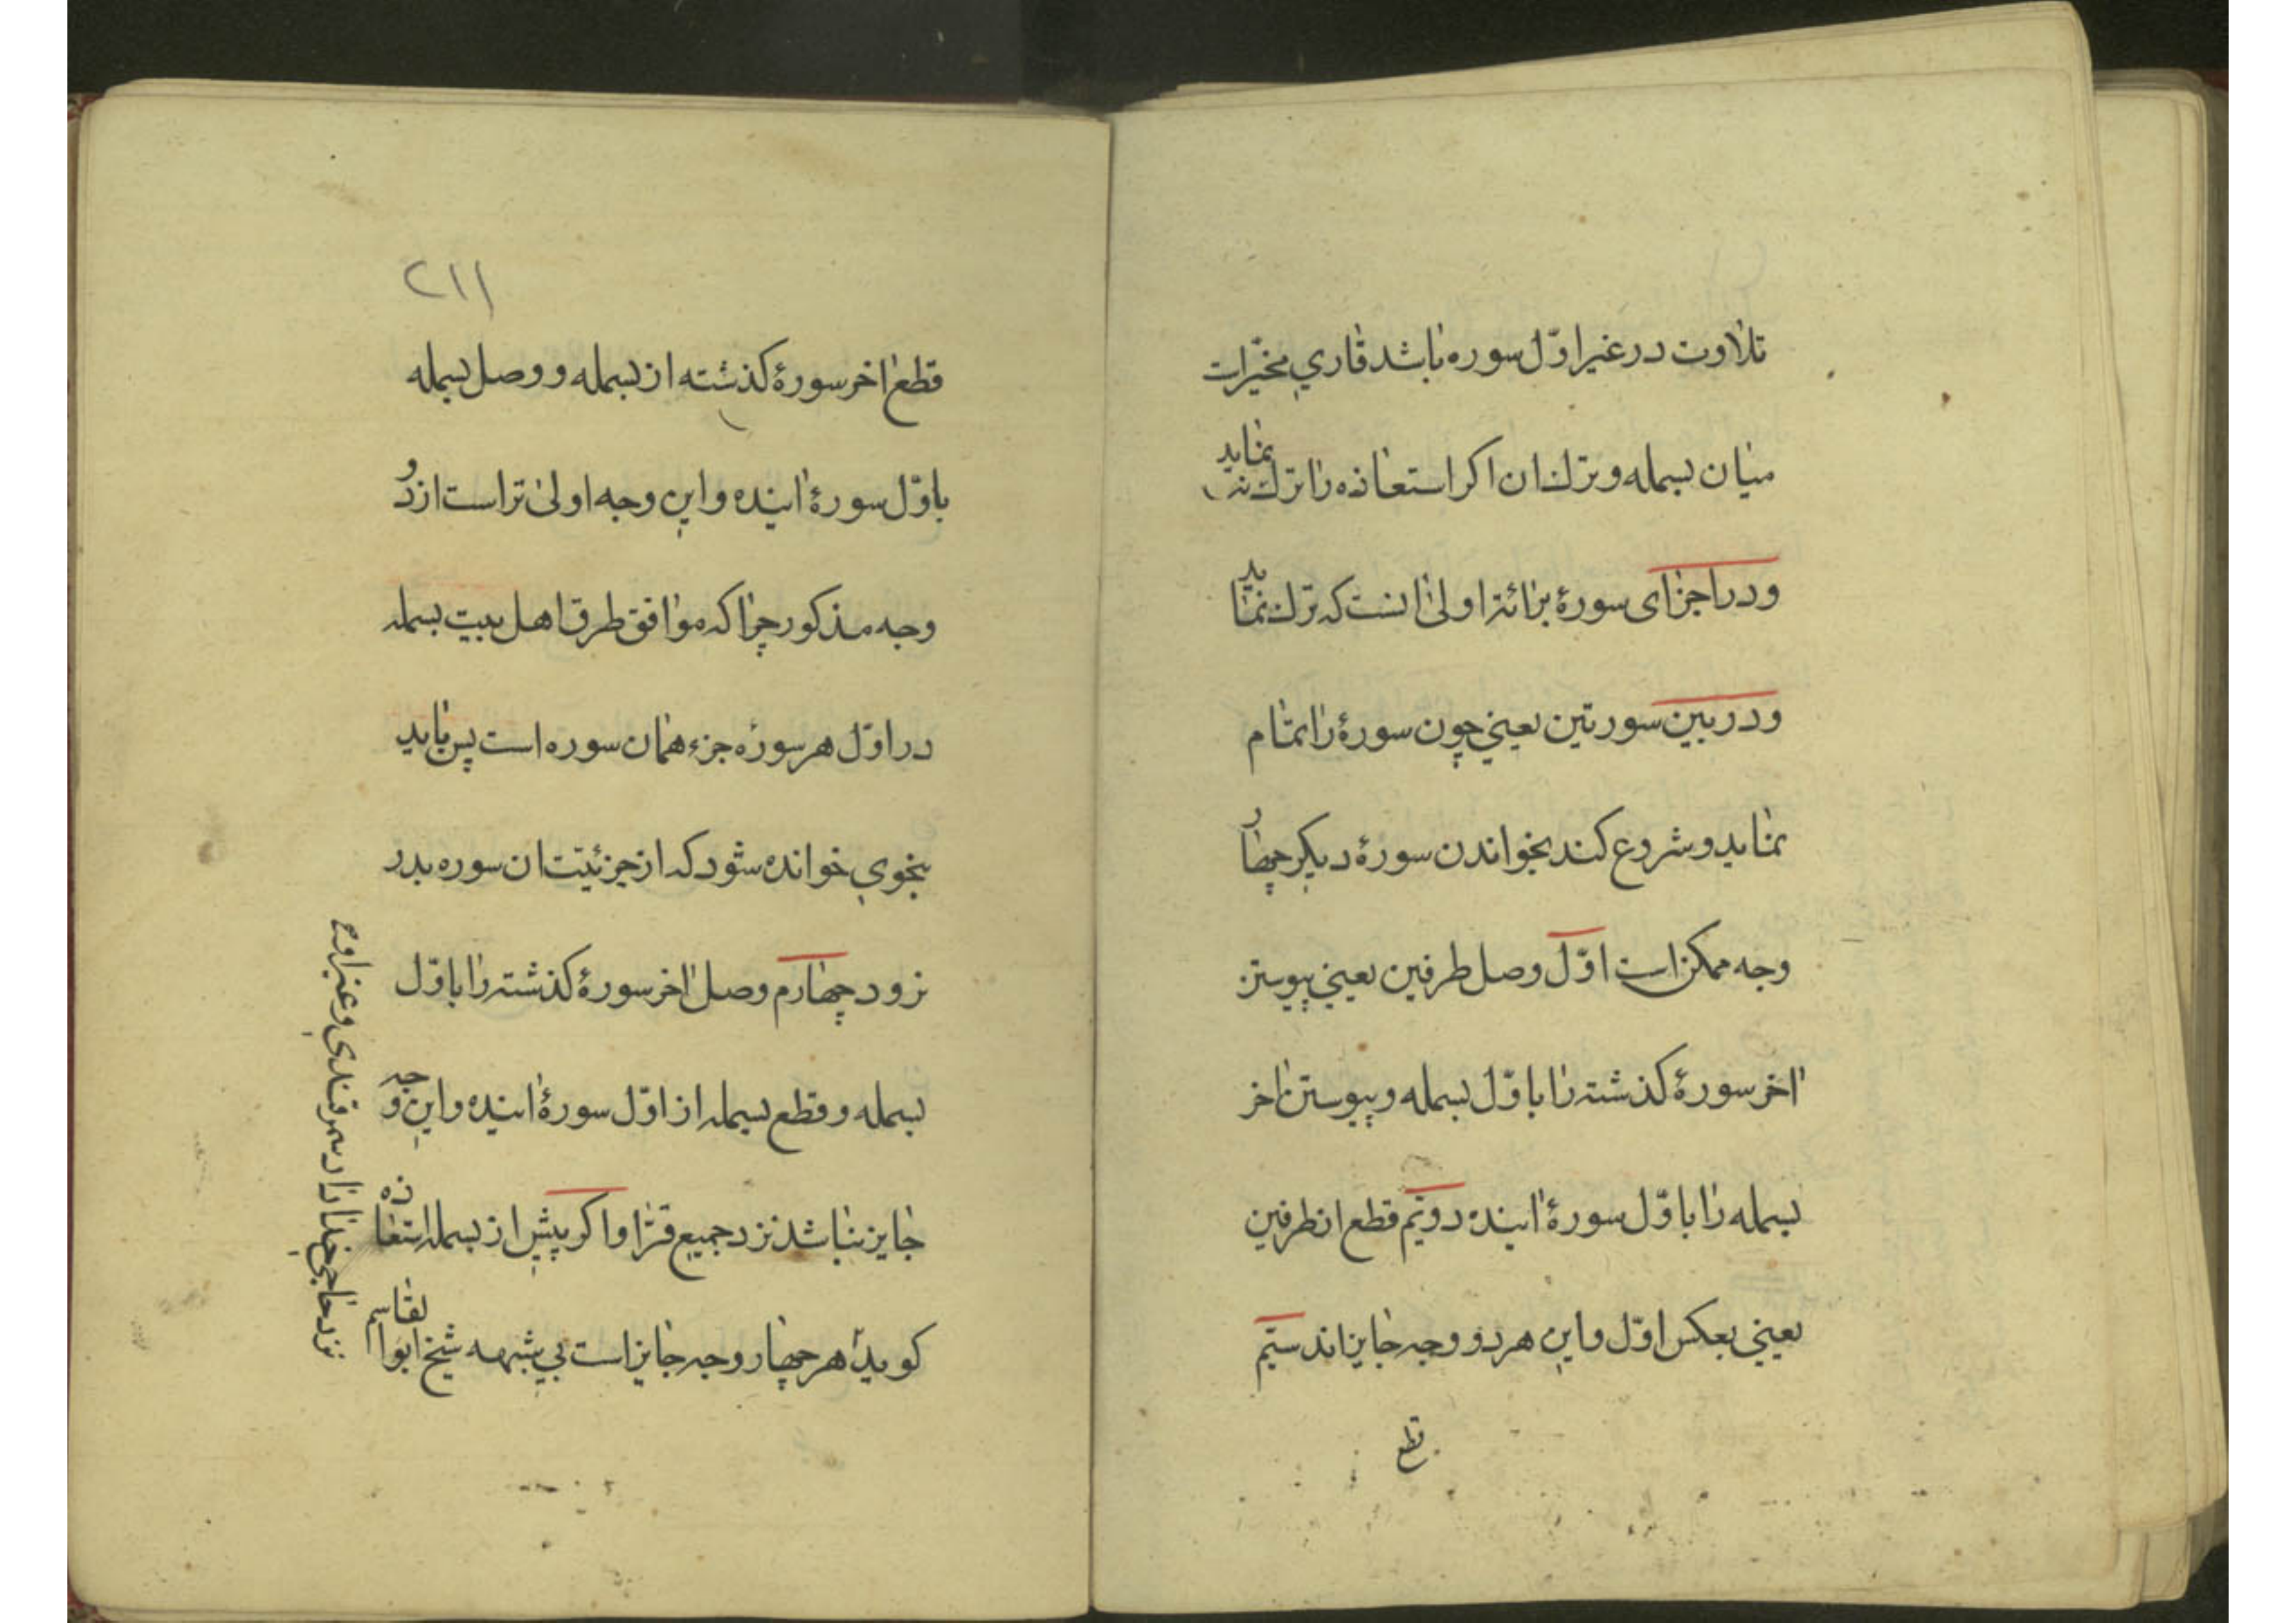 تلاوت در غیر اوّل سوره باشد قاري مخیّرات
میان بسمله و ترك ان اکر استعاذه را ترك نماید
و در اجزای سورهٔ برائة اولیٰ انست که ترك نماید
و در بین سورتین یعني چون سورهٔ را تمام
نماید و شروع کند بخواندن سورهٔ دیکر چهار
وجه ممکن است اوّل وصل طرفین یعني پیوستن
اخر سورهٔ کذشته را با اوّل بسمله و پیوستن اخر
بسمله را با اوّل سورهٔ اینده دویّم قطع از طرفین
یعني بعکس اوّل و این هر دو وجه جایزاند سیّم
قطع
۲۱۱
قطع اخر سورهٔ کذشته از بسمله و وصل بسمله
با اوّل سورهٔ اینده و این وجه اولیٰ تر است از دو
وجه مذکور چرا که موافق طرق اهل بیت بسمله
در اوّل هر سوره جزء همان سوره است پس باید
بنحوي خوانده شود که از جزئیّت ان سوره بدر
نرود چهارم وصل اخر سورهٔ کذشته را با اوّل
بسمله و قطع بسمله از اوّل سورهٔ اینده و این وجه
جایز نباشد نزد جمیع قرّا و اکر پیش از بسمله استعاذه
کوید هر چهار وجه جایز است بي شبهه شیخ ابوالقاسم
نزد حاجي سمرقندی و غیر اوه